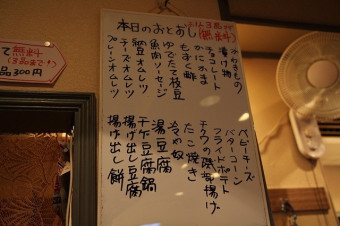 本日のおとおし
(無料)
かわきもの
漬け物
チョコレート
かにかま
もずく酢
ゆでたて枝豆
魚肉ソーセージ
納豆オムレツ
チーズオムレツ
プレーンオムレツ
ベビーチーズ
バターコーン
フライドポテト
チクワの磯部揚げ
たこ焼き
冷や奴
湯豆腐
チゲ豆腐鍋
揚げ出し豆腐
揚げ出し餅
て無料
品まで!
品300円